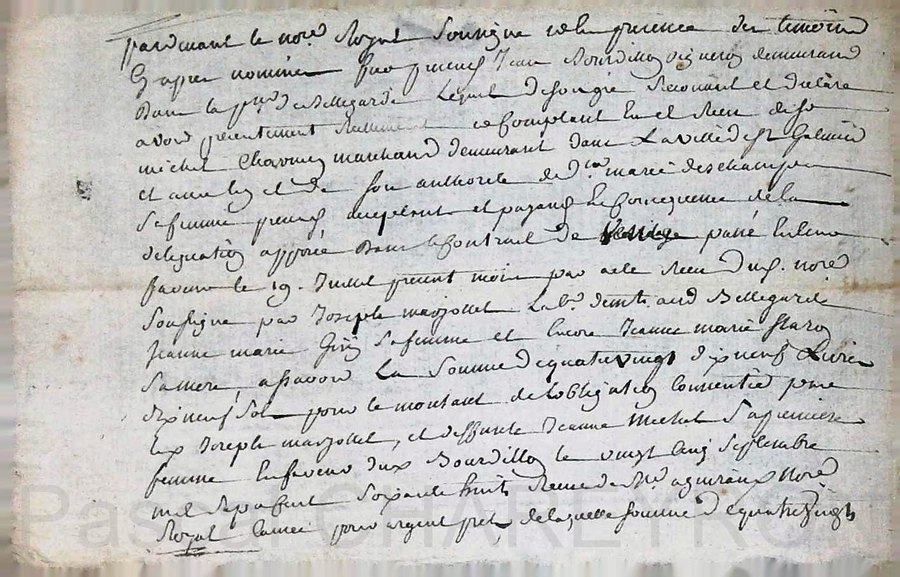 pardevant le nore Royal Soussigné et en presence des temoins
Cy apres nommés fut present Jean Bourdillon vigneron demeurant
Dans la psse de Bellegarde Lequel de son gré Reconait et declare
avoir presentement Reellement et Comptant Eu et Receu de sr
michel Charvin marchand demeurant dans La ville de st Galmier
et avec luy et de son authorité de lle marie deschamps
Sa femme presents acceptant et payants En Consequence de la
delegation apposée Dans le Contrat de passé En leur
faveur le 19. Juillet present mois par acte Receu du nore
Soussigné par Joseph marjollet Labr dudt Bellegarde
Jeanne marie Sa femme et Encore Jeanne marie
Sa mere assavoir La Somme de quatre vingt dix neuf Livres
dix neuf Sols pour le montant de l'obligation Consentie par
Led Joseph marjollet, et deffunte Jeanne michel Sa premiere
femme En faveur dud Bourdillon le vingt cinq Septembre
mil Sept Cent Soixante huit Receue de Me nore
Royal Causée pour argent pret, de laquelle Somme de quatre vingt
Pascal CHAREYRON